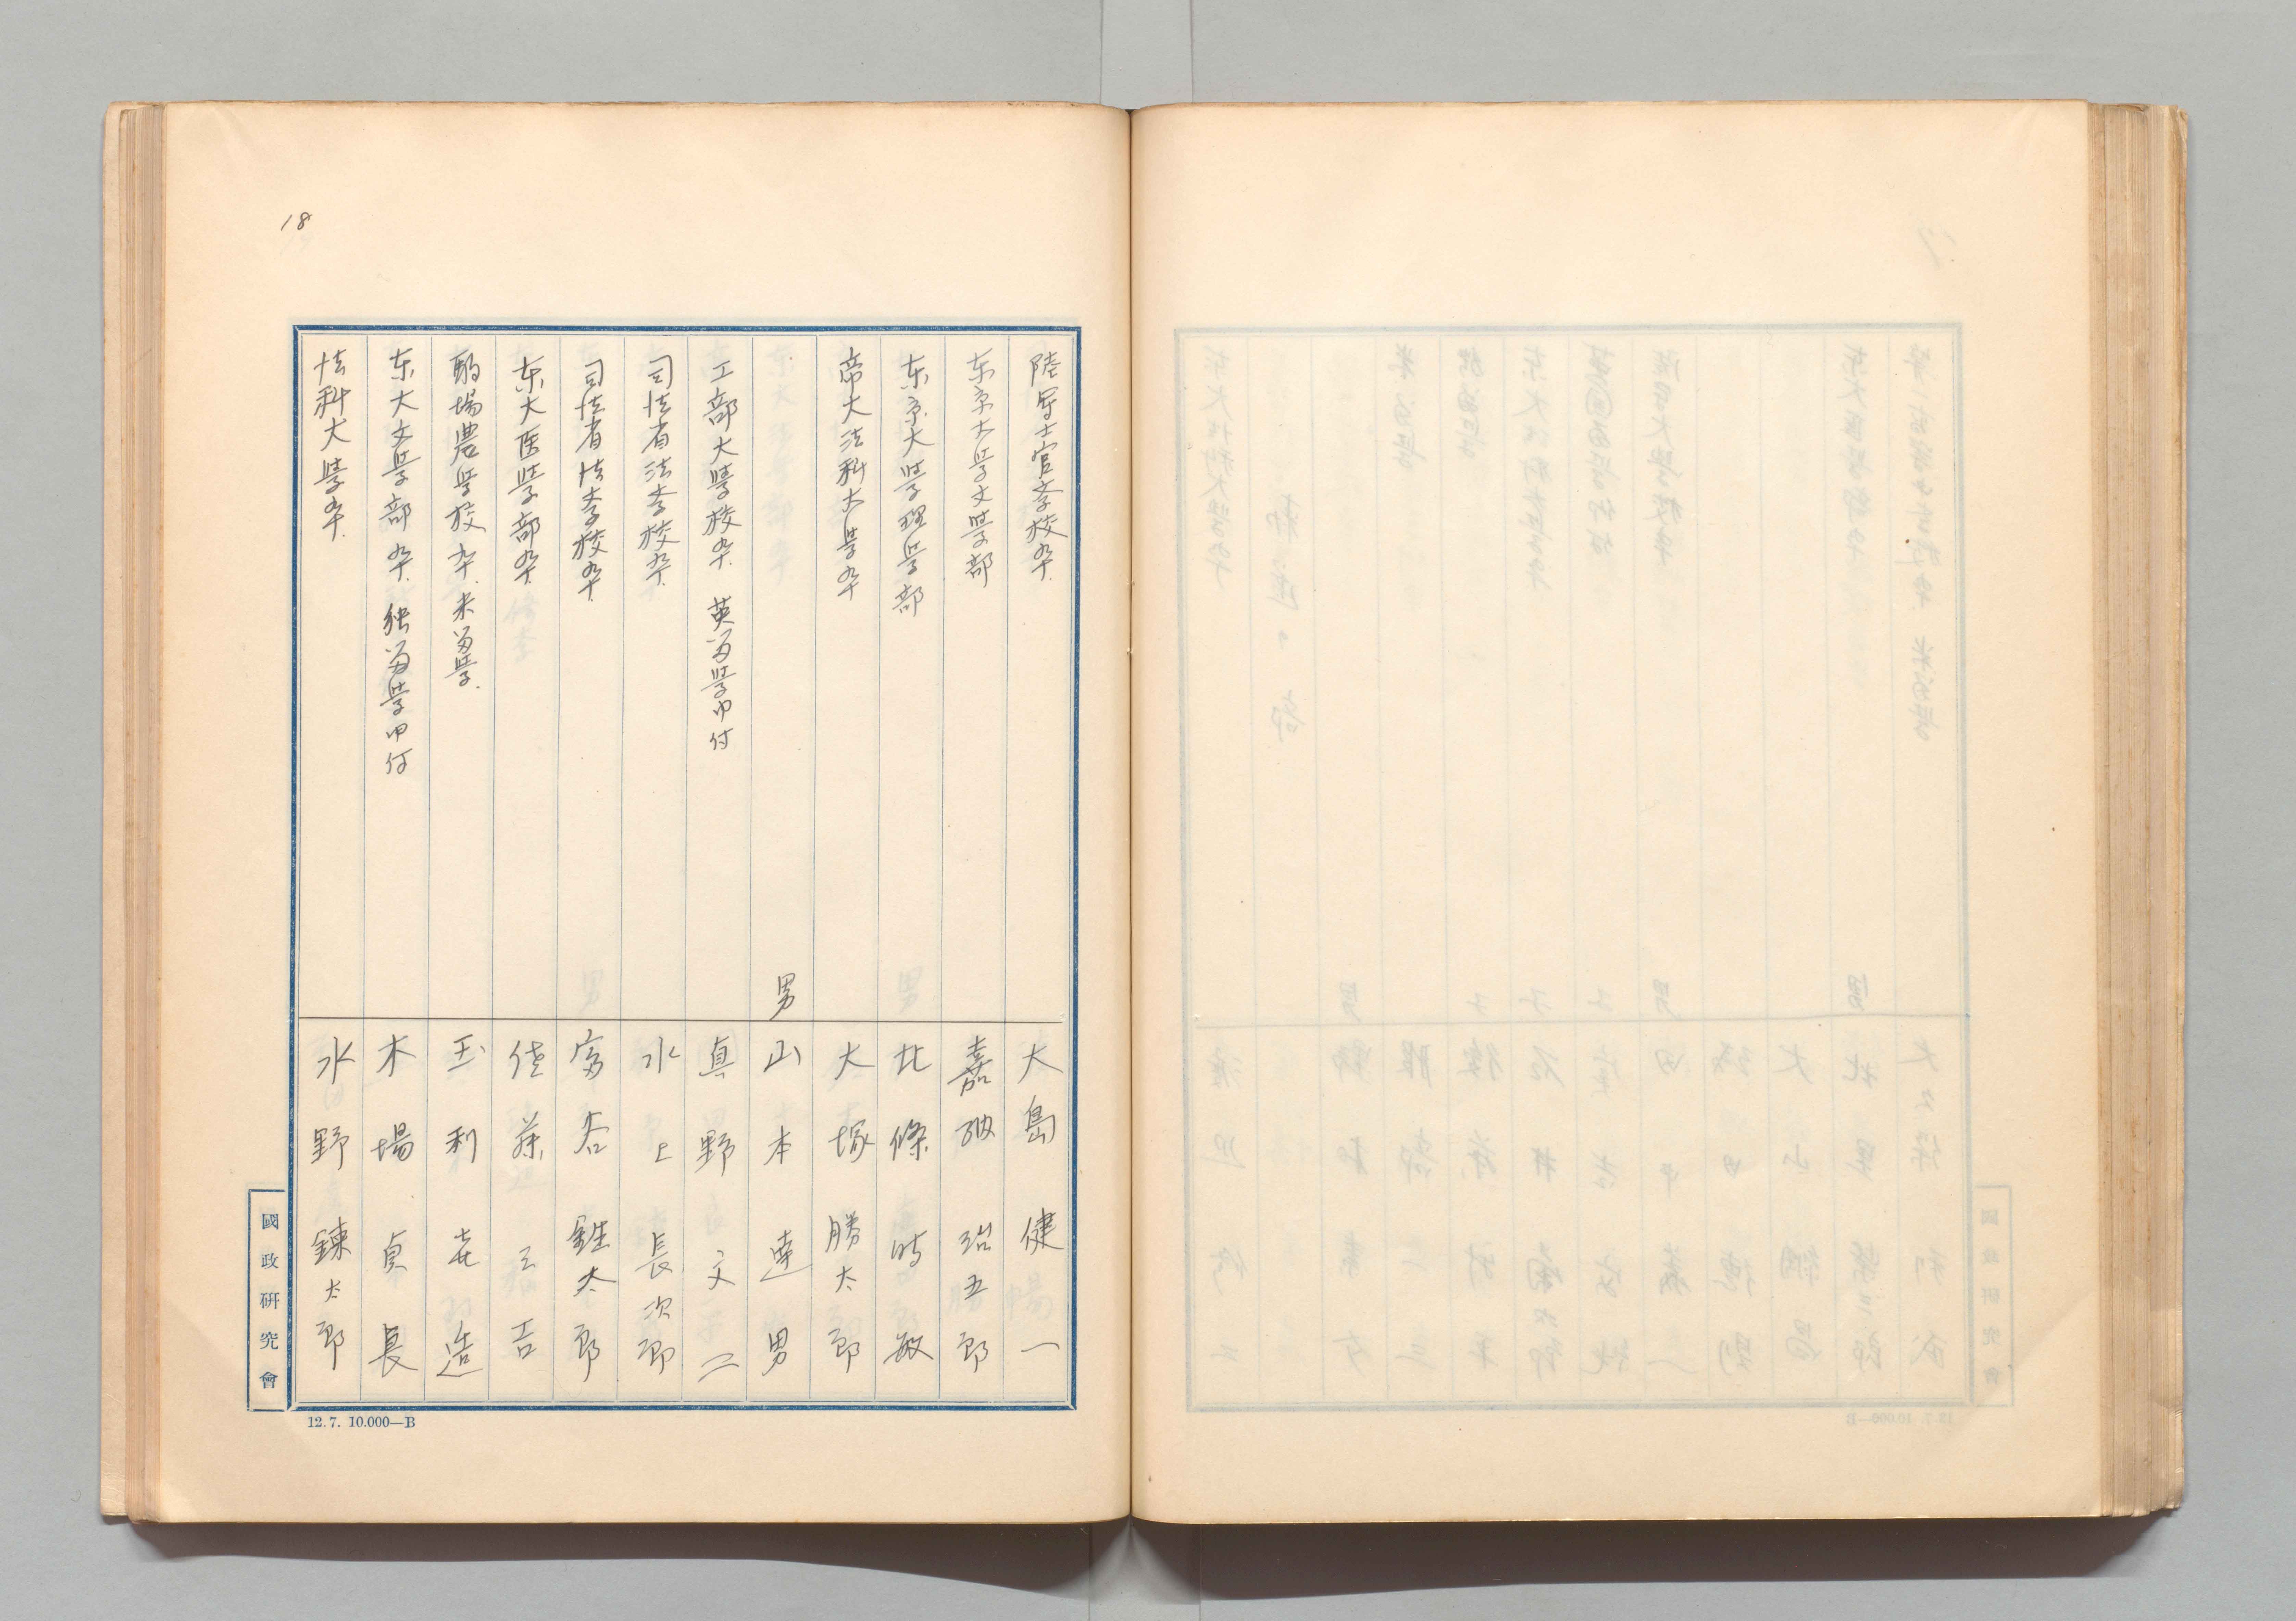 18
陸军士官学校卆. 大島健一
东京大学文学部 嘉納治五郎
东京大学理学部 北條時敏
帝大法科大学卆 大塚勝太郎
男 山本達男
工部大学校卆. 英留学申付 真野文二
司法省法学校卆. 水上長次郎
司法省法学校卆. 富谷鉎太郎
东大医学部卆. 佐藤三吉
駒場農学校卆. 米留学. 玉利喜造
东大文学部卆. 独留学申付 木場貞長
法科大学卆. 水野錬太郎
國政研究會
12.7. 10.000—B